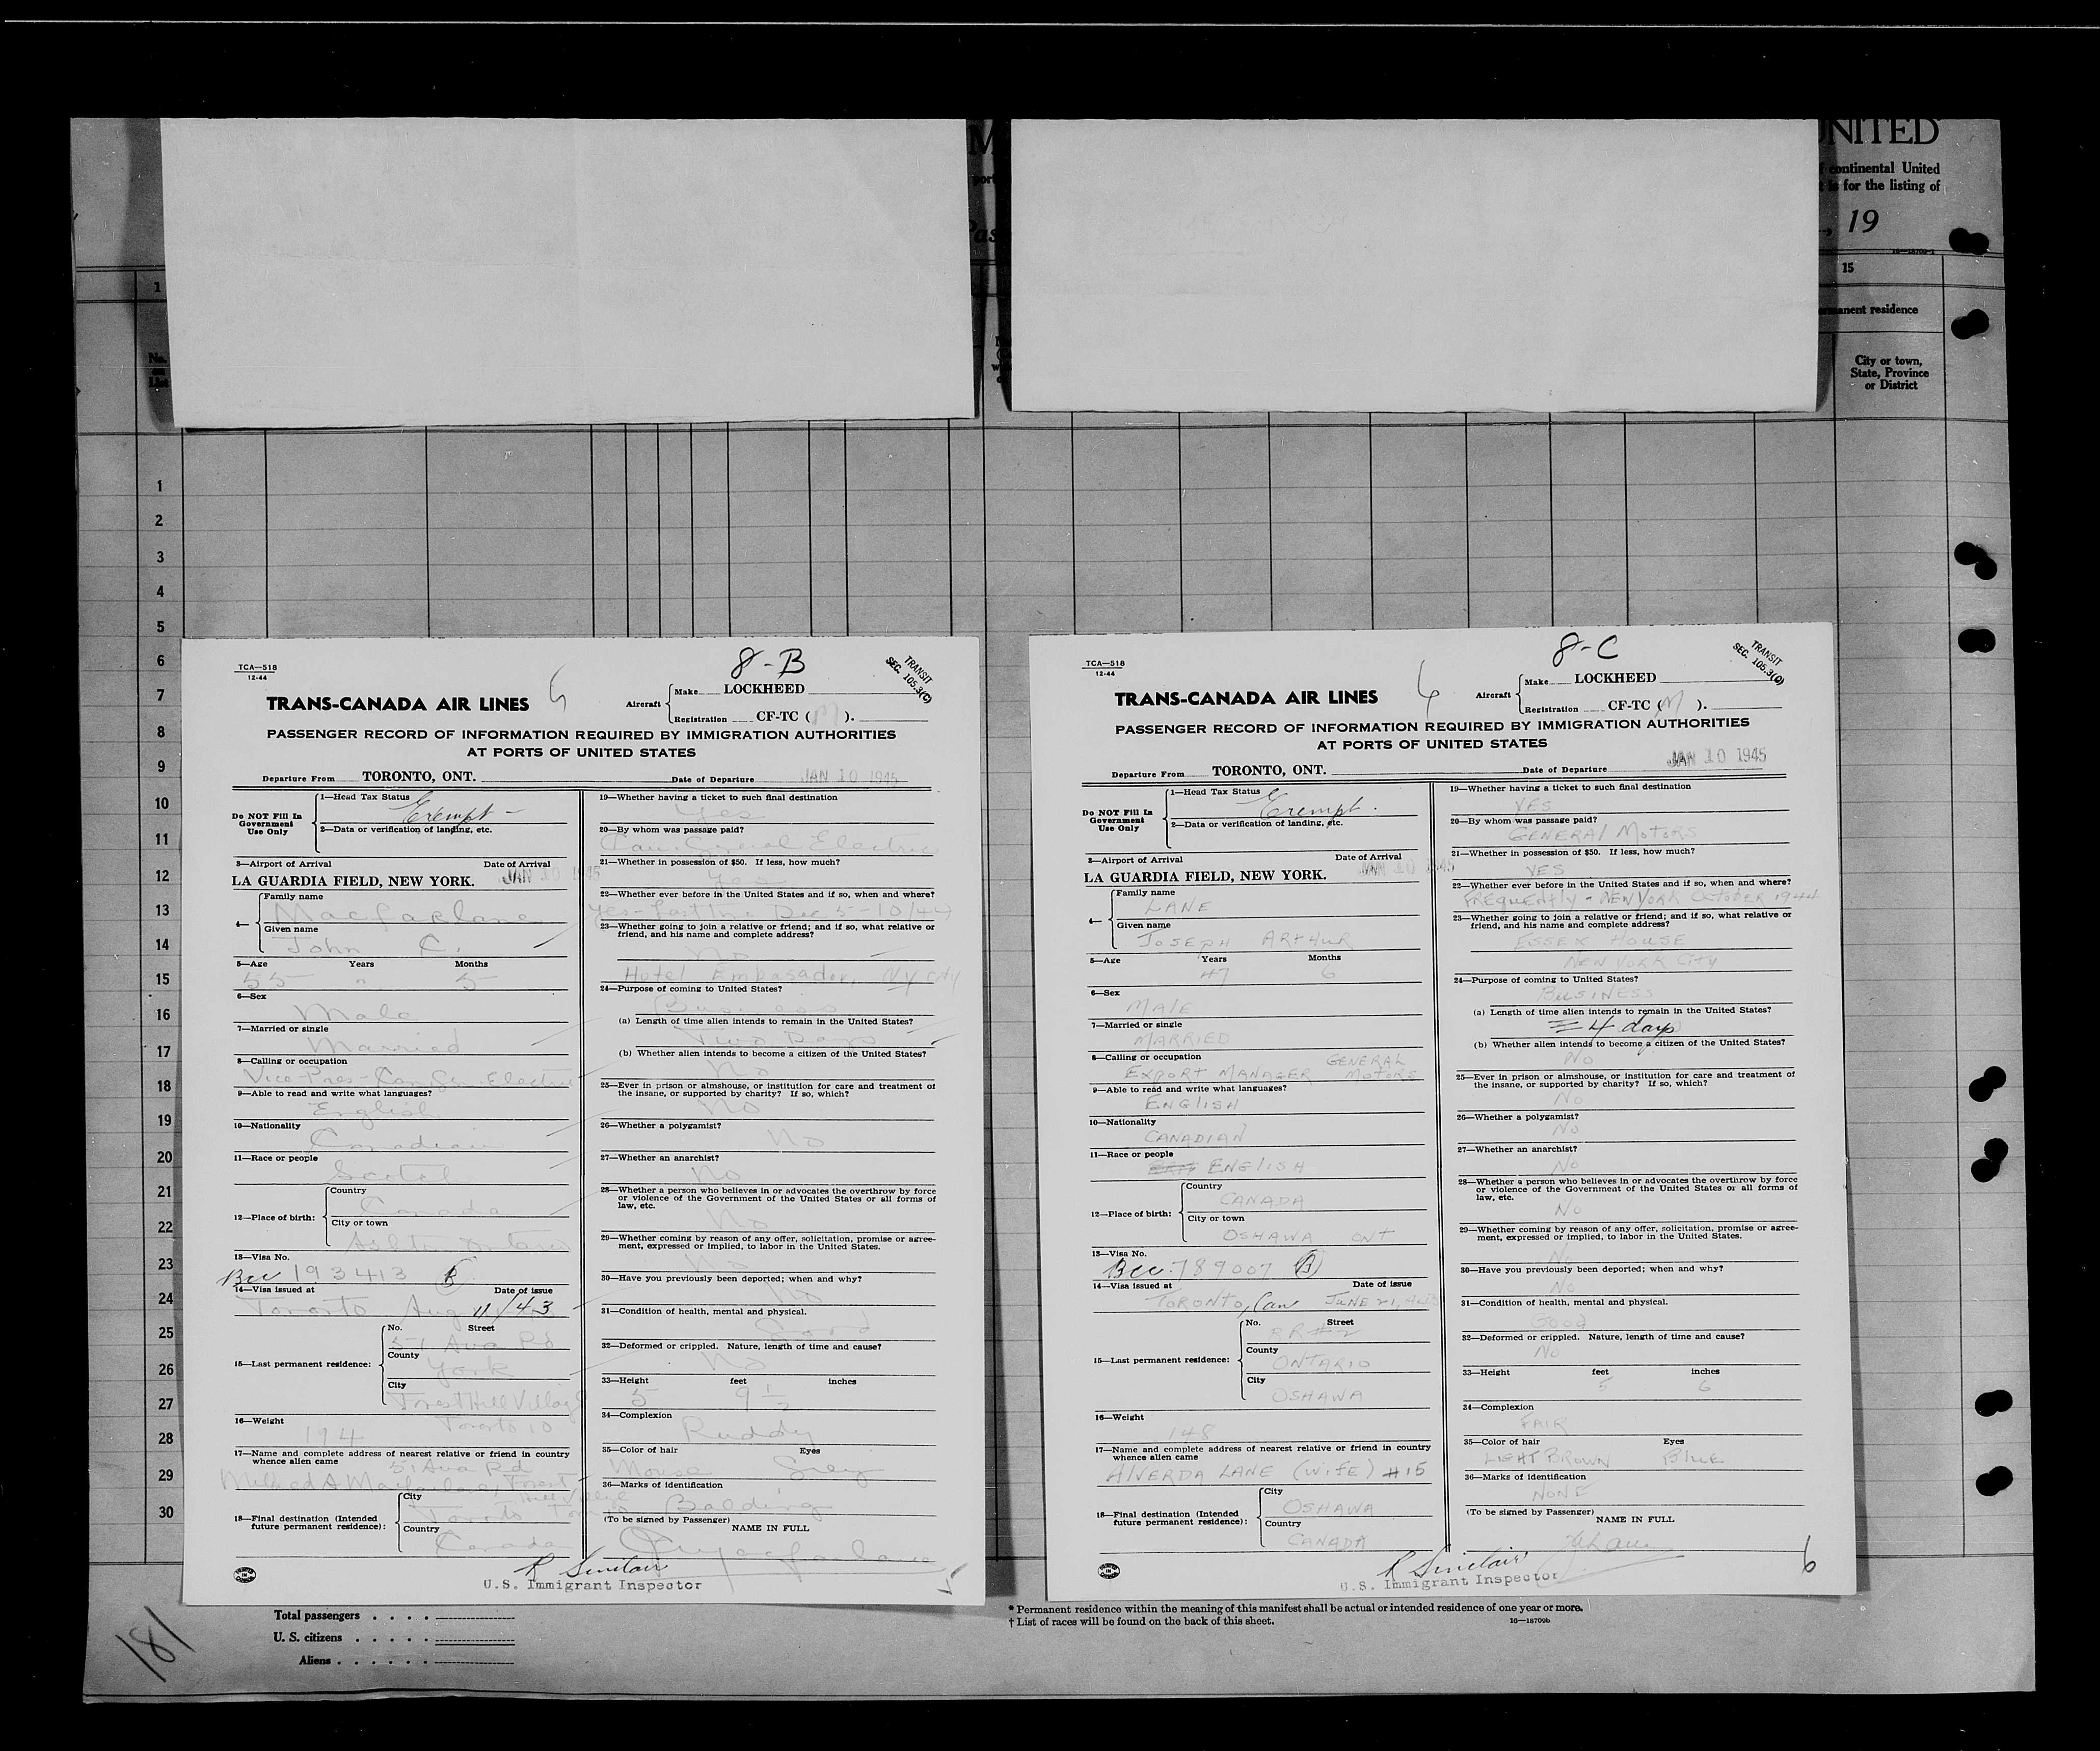 UNITED
f continental United
for the listing of
, 19
15
1
manent residence
No.
on
List
City or town,
State, Province
or District
1
2
3
4
5
6
7
8
9
10
11
12
13
14
15
16
17
18
19
20
21
22
23
24
25
26
27
28
29
30
8-B
TCA—518
12-44
TRANSIT
SEC. 105.3(C)
TRANS-CANADA AIR LINES
Aircraft
Make LOCKHEED
Registration CF-TC (M).
PASSENGER RECORD OF INFORMATION REQUIRED BY IMMIGRATION AUTHORITIES
AT PORTS OF UNITED STATES
Departure From TORONTO, ONT. Date of Departure JAN 10 1945
Do NOT Fill In
Government
Use Only
1—Head Tax Status
Exempt -
2—Data or verification of landing, etc.
3—Airport of Arrival Date of Arrival
LA GUARDIA FIELD, NEW YORK. JAN 10 1945
4—
Family name
Macfarlane
Given name
John C.
5—Age Years Months
55 " 5
6—Sex
Male
7—Married or single
Married
8—Calling or occupation
Vice-Pres-Can Gen. Electric
9—Able to read and write what languages?
English
10—Nationality
Canadian
11—Race or people
Scotch
12—Place of birth:
Country
Canada
City or town
13—Visa No.
Bcc 193413 B
14—Visa issued at Date of issue
Toronto Aug 11/43
15—Last permanent residence:
No. Street
51 Ava Rd
County
York
City
Forest Hill Village
Toronto 10
16—Weight
194
17—Name and complete address of nearest relative or friend in country
whence alien came
51 Ava Rd
Forest
Hill Village
18—Final destination (Intended
future permanent residence):
City
Toronto
Country
Canada
19—Whether having a ticket to such final destination
Yes
20—By whom was passage paid?
Can. General Electric
21—Whether in possession of $50. If less, how much?
Yes
22—Whether ever before in the United States and if so, when and where?
Yes- last time Dec 5-10/44
23—Whether going to join a relative or friend; and if so, what relative or
friend, and his name and complete address?
No
Hotel Embasador, NY City
24—Purpose of coming to United States?
Business
(a) Length of time alien intends to remain in the United States?
Two Days
(b) Whether alien intends to become a citizen of the United States?
No
25—Ever in prison or almshouse, or institution for care and treatment of
the insane, or supported by charity? If so, which?
No
26—Whether a polygamist?
No
27—Whether an anarchist?
No
28—Whether a person who believes in or advocates the overthrow by force
or violence of the Government of the United States or all forms of
law, etc.
No
29—Whether coming by reason of any offer, solicitation, promise or agree-
ment, expressed or implied, to labor in the United States.
No
30—Have you previously been deported; when and why?
No
31—Condition of health, mental and physical.
Good
32—Deformed or crippled. Nature, length of time and cause?
No
33—Height feet inches
5 9 1/2
34—Complexion
Ruddy
35—Color of hair Eyes
Mouse Grey
36—Marks of identification
Balding
(To be signed by Passenger)
NAME IN FULL
R Sinclair
U.S. Immigrant Inspector
5
8-C
TCA—518
12-44
TRANSIT
SEC. 105.3(C)
TRANS-CANADA AIR LINES
Aircraft
Make LOCKHEED
Registration CF-TC (M).
PASSENGER RECORD OF INFORMATION REQUIRED BY IMMIGRATION AUTHORITIES
AT PORTS OF UNITED STATES
Departure From TORONTO, ONT. Date of Departure JAN 10 1945
Do NOT Fill In
Government
Use Only
1—Head Tax Status
Exempt.
2—Data or verification of landing, etc.
3—Airport of Arrival Date of Arrival
LA GUARDIA FIELD, NEW YORK. JAN 10 1945
4—
Family name
LANE
Given name
JOSEPH ARTHUR
5—Age Years Months
47 6
6—Sex
MALE
7—Married or single
MARRIED
8—Calling or occupation
EXPORT MANAGER GENERAL MOTORS
9—Able to read and write what languages?
ENGLISH
10—Nationality
CANADIAN
11—Race or people
ENGLISH
12—Place of birth:
Country
CANADA
City or town
OSHAWA ONT
13—Visa No.
Bcc. 789007 B
14—Visa issued at Date of issue
TORONTO, Can JUNE 21,
15—Last permanent residence:
No. Street
RR#2
County
ONTARIO
City
OSHAWA
16—Weight
148
17—Name and complete address of nearest relative or friend in country
whence alien came
ALVERDA LANE (WIFE) #15
18—Final destination (Intended
future permanent residence):
City
OSHAWA
Country
CANADA
19—Whether having a ticket to such final destination
YES
20—By whom was passage paid?
GENERAL MOTORS
21—Whether in possession of $50. If less, how much?
YES
22—Whether ever before in the United States and if so, when and where?
FREQUENTLY - NEW YORK OCTOBER 1944
23—Whether going to join a relative or friend; and if so, what relative or
friend, and his name and complete address?
ESSEX HOUSE
NEW YORK CITY
24—Purpose of coming to United States?
BUSINESS
(a) Length of time alien intends to remain in the United States?
4 days
(b) Whether alien intends to become a citizen of the United States?
No
25—Ever in prison or almshouse, or institution for care and treatment of
the insane, or supported by charity? If so, which?
No
26—Whether a polygamist?
No
27—Whether an anarchist?
No
28—Whether a person who believes in or advocates the overthrow by force
or violence of the Government of the United States or all forms of
law, etc.
No
29—Whether coming by reason of any offer, solicitation, promise or agree-
ment, expressed or implied, to labor in the United States.
No
30—Have you previously been deported; when and why?
No
31—Condition of health, mental and physical.
GOOD
32—Deformed or crippled. Nature, length of time and cause?
No
33—Height feet inches
5 6
34—Complexion
FAIR
35—Color of hair Eyes
LIGHT BROWN BLUE
36—Marks of identification
NONE
(To be signed by Passenger)
NAME IN FULL
R Sinclair
U.S. Immigrant Inspector
6
Total passengers . . . .
U. S. citizens . . . . .
Aliens . . . . . .
* Permanent residence within the meaning of this manifest shall be actual or intended residence of one year or more.
† List of races will be found on the back of this sheet. 16—18709b
181